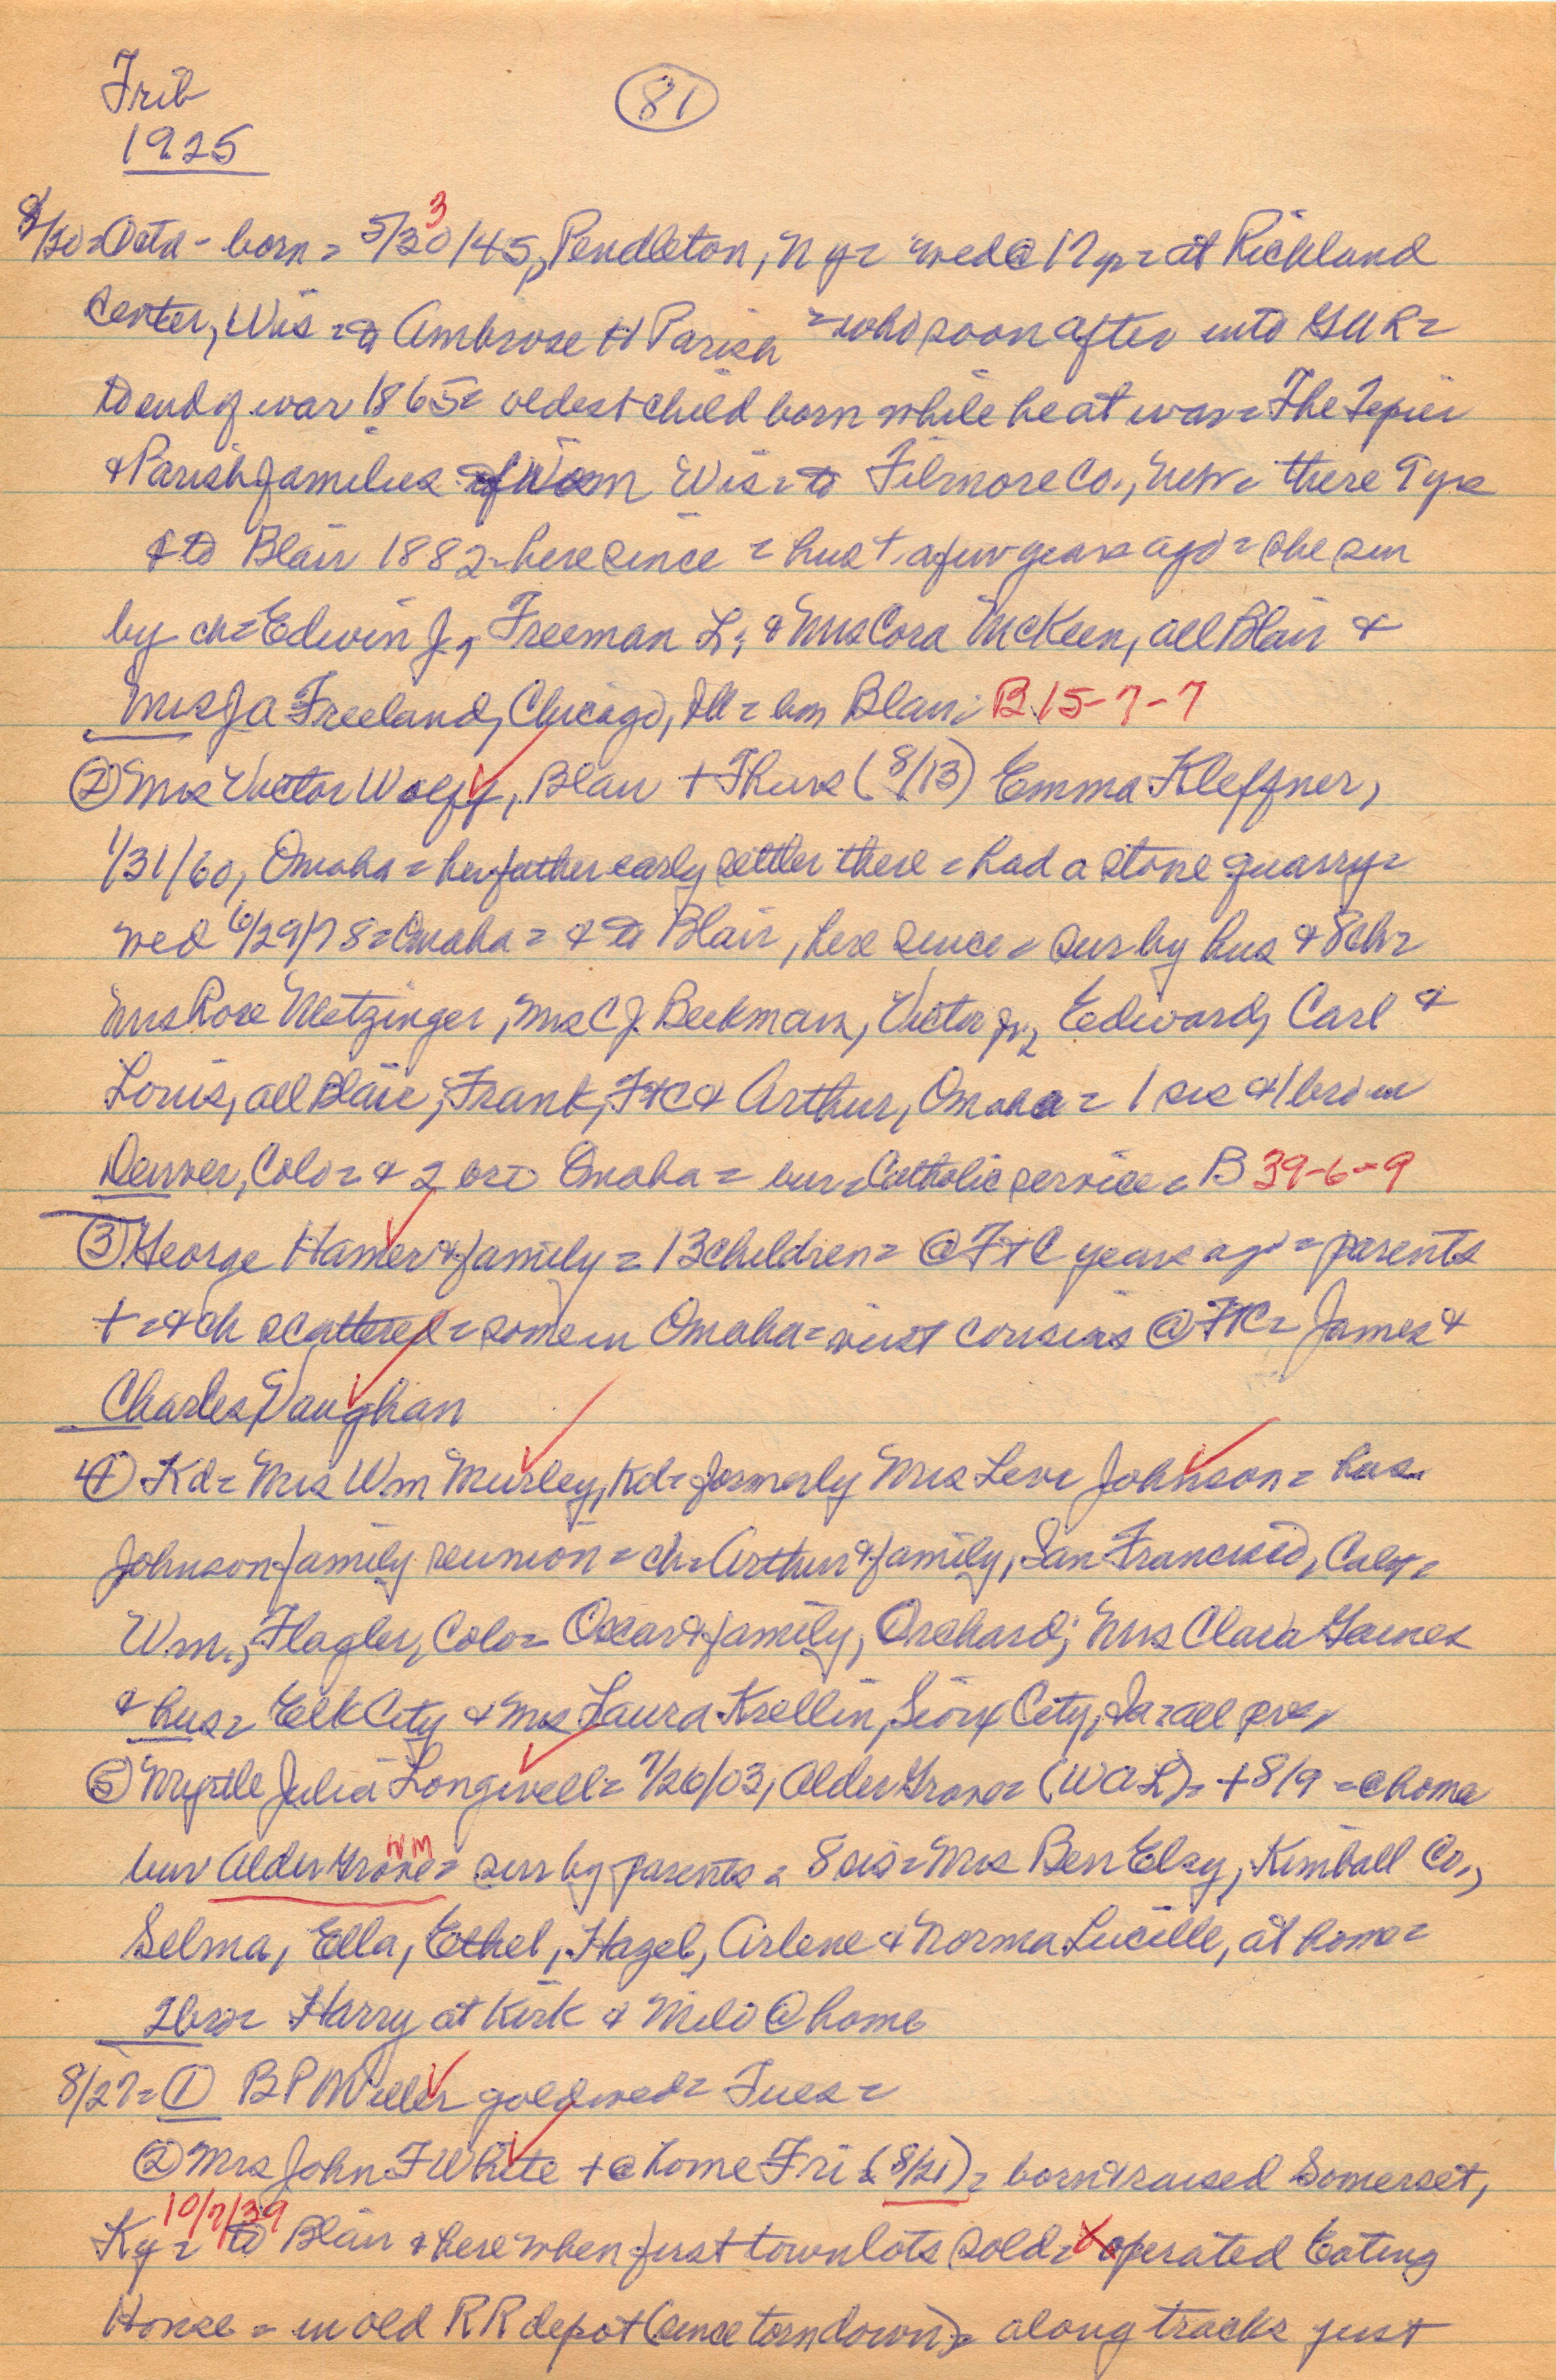 Trib
81
1925
8/20 = Octa - born = 5/30/45, Pendleton, N Y = wed @ 17 yr = at Richland
3
Center, Wis = to Ambrose H Parish = who soon after into GAR =
to end of war 1865 = oldest child born while he at war = The
& Parish families Wis = to Filmore Co., = there 7 yrs
& to Blair 1882 - here since = hus + a few years ago = she sur
by ch = Edwin J., Freeman L; & Mrs Cora McKeen, all Blair &
Mrs J A Freeland, Chicago, Ill = bur Blair B 15-7-7
② Mrs Victor Wolff, Blair + Thurs (8/13) Emma Kleffner,
1/31/60, Omaha = her father early settler there = had a stone quarry =
wed 6/29/78 = Omaha = & to Blair, here since = sur by hus & 8 ch =
Mrs Rose Metzinger, Mrs C J. Beekman, Victor Jr, Edward, Carl &
Louis, all Blair; Frank, FtC & Arthur, Omaha = 1 sis & 1 bro in
Denver, Colo = & 2 bro Omaha = bur = Catholic service = B 39-6-9
③ George Hamer & family = 13 children = @ FtC years ago = parents
+ = & ch scattered = some in Omaha = visit cousins @ FtC = James &
Charles Vaughan
④ Kd = Mrs Wm Murley, Kd = formerly Mrs Levi Johnson = has
Johnson family reunion = ch = Arthur & family, San Francisco, Calif =
Wm., Flagler, Colo = Oscar & family, Orchard; Mrs Clara Gaines
& hus = Elk City & Mrs Laura Krellin, Sioux City, Ia = all pres,
⑤ Myrtle Julia Longwell = 7/26/03, Alder Grove = (W A L) = + 8/9 = @ home
WM
bur Alder Grove = sur by parents = 8 sis = Mrs Ben Elsy, Kimball Co.,
Selma, Ella, Ethel, Hazel, Arlene & Norma Lucille, at home =
2 bro = Harry at Kirk & Milo @ home
8/27 = ① B P Miller gold wed = Tues =
② Mrs John F White + @ home Fri (8/21) = born & raised Somerset,
10/7/39
Ky = to Blair & here when first town lots sold = operated Eating
House = in old R R depot (since torn down) = along tracks just